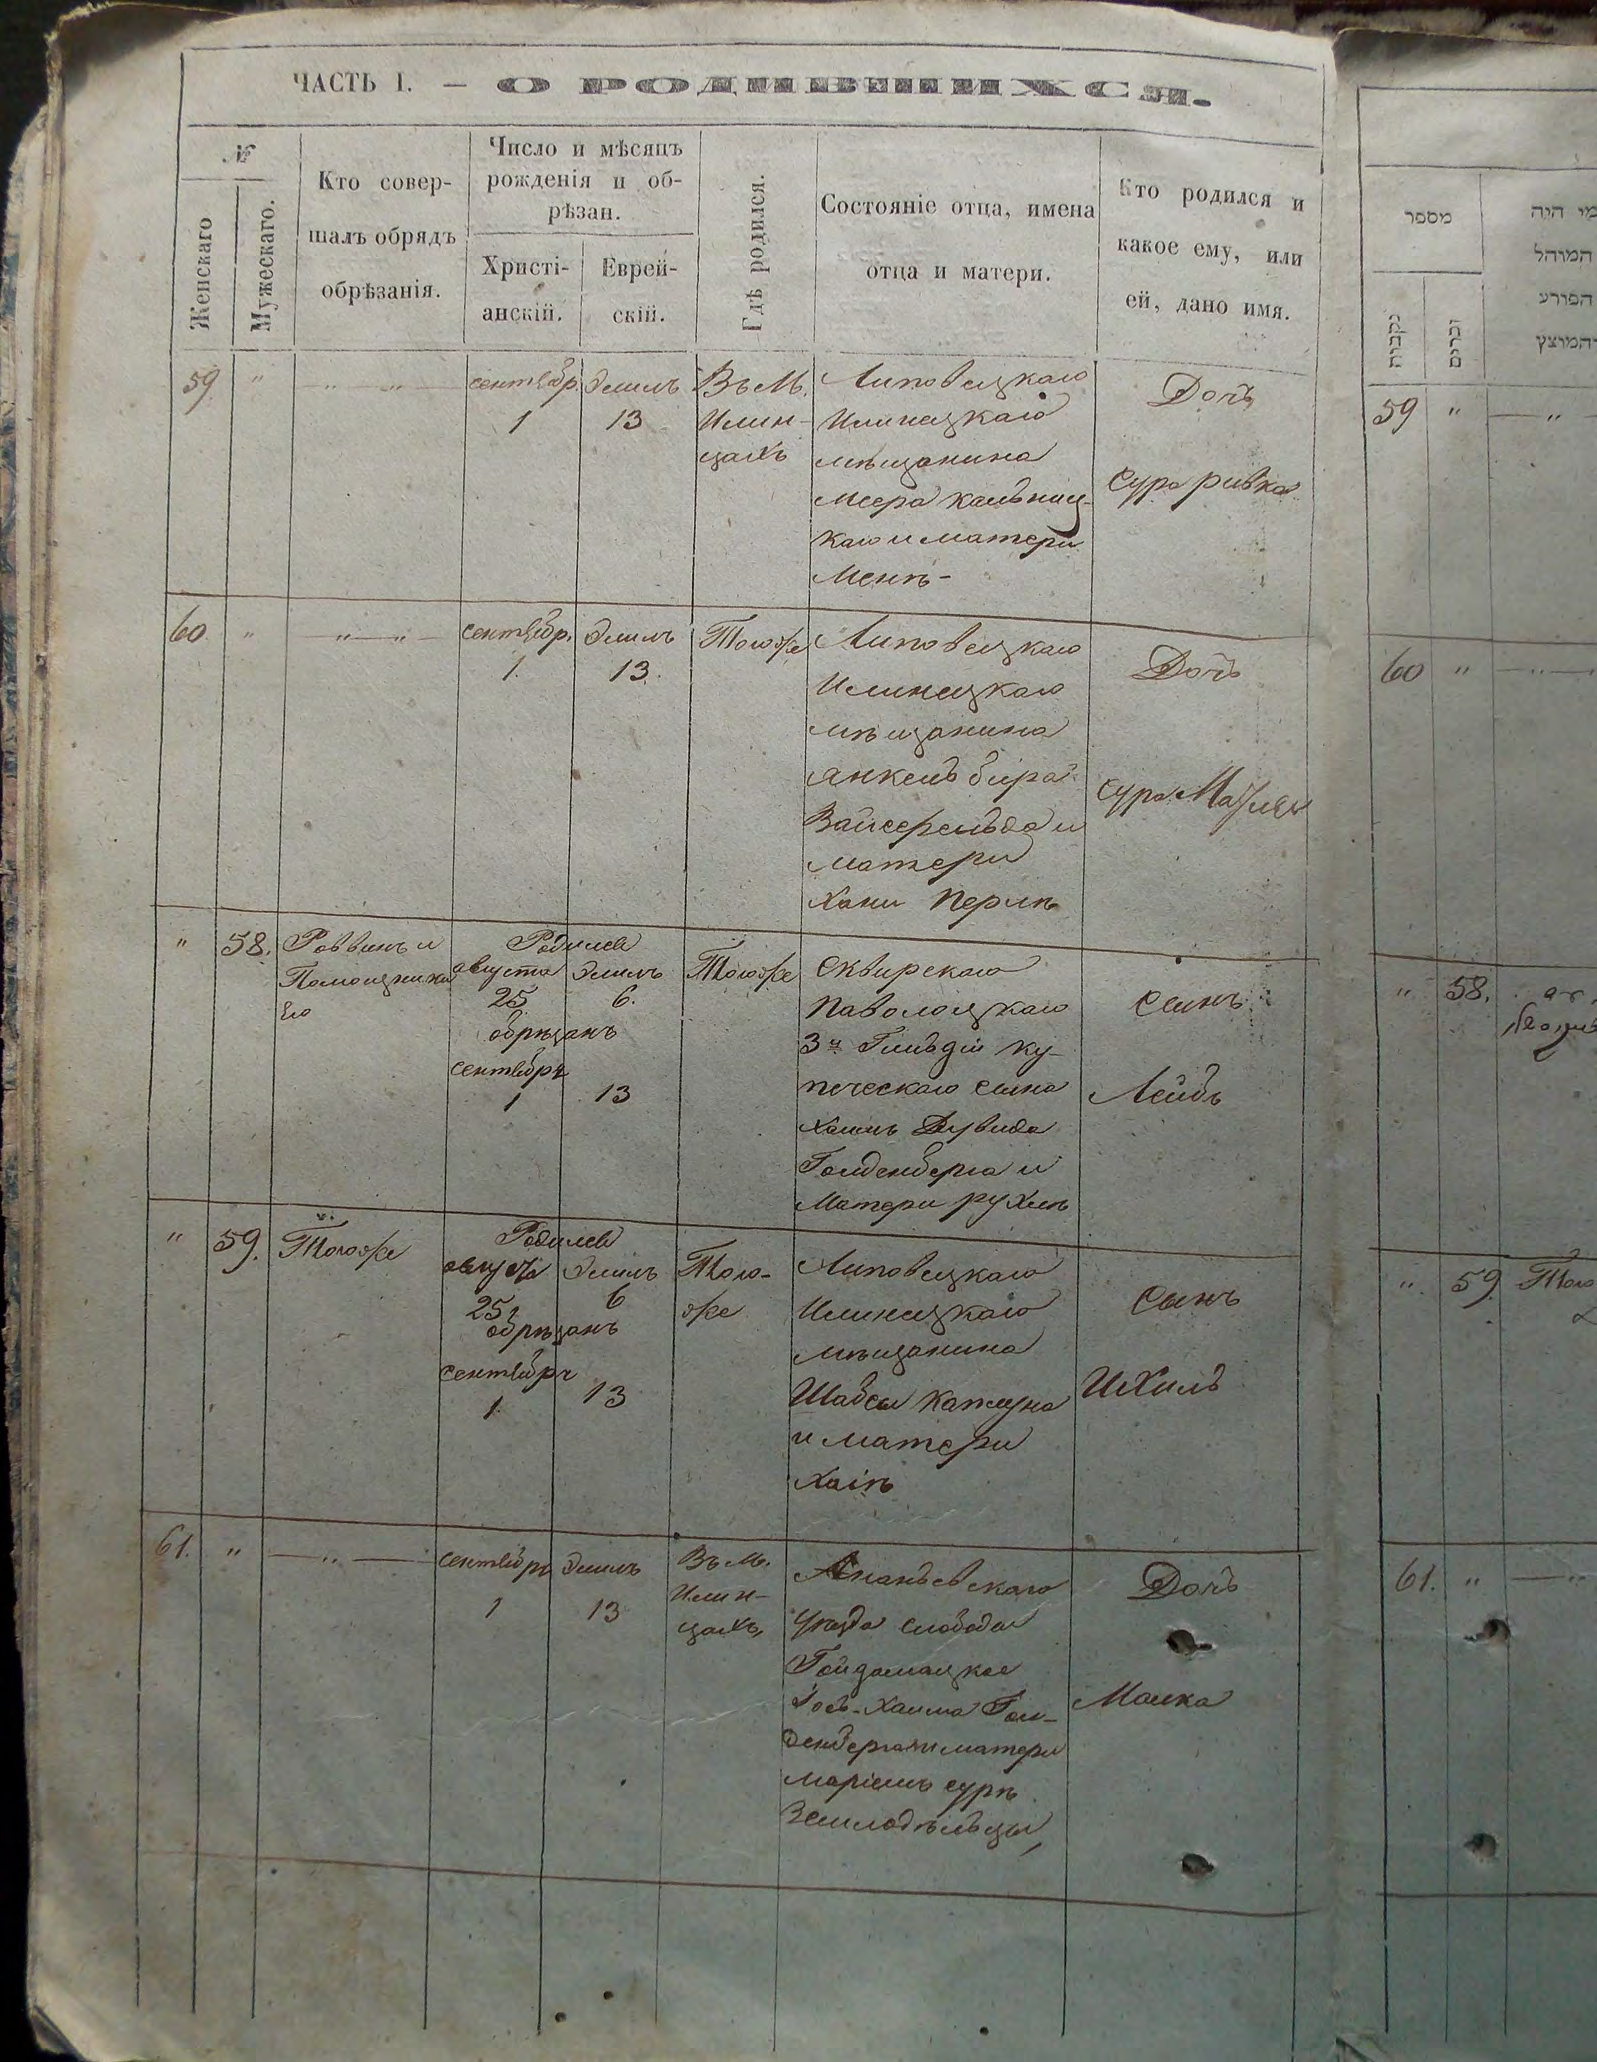 ЧАСТЬ I. — О РОДИВШИХСЯ.
№
Женскаго
Мужескаго.
Кто совер-
шалъ обрядъ
обрѣзанія.
Число и мѣсяцъ
рожденія и об-
рѣзан.
Христі-
анскій.
Еврей-
скій.
Гдѣ родился.
Состояніе отца, имена
отца и матери.
Кто родился и
какое ему, или
ей, дано имя.
59
"
— " — " —
сентябр.
1
Элилъ
13
Въ М.
Илин-
цахъ
Липовецкаго
Илинецкаго
мѣщанина
Меера Кальниц-
каго и матери
Менѣ -
Дочь
Сура Ривка
60
"
" — " —
сентябр.
1.
Элилъ
13.
Тогоже
Липовецкаго
Илинецкаго
мѣщанина
Матери
Хани Перлѣ
Дочь
Сура
"
58.
Раввинъ и
Помощника
Его
Родился
августа
25
Элилъ
6.
обрѣзанъ
сентября
1
13
Тогоже
Сквирскаго
Паволоцкаго
3й Гильдіи ку-
печескаго сына
Хаимъ Дувида
Голденберга и
Матери Рухли
Сынъ
Лейбъ
"
59.
Тогоже
Родился
августа
25
Элилъ
6
обрѣзанъ
сентября
1.
13
Того-
же
Липовецкаго
Илинецкаго
мѣщанина
Шабсы
и матери
Хаіѣ
Сынъ
Ихилъ
61.
"
— " —
сентября
1
Элилъ
13
Въ М.
Илин-
цахъ,
Ананьевскаго
уѣзда слобода
Гайдамацкое
Хаима Гол-
денберга и матери
Маріемъ Сурѣ
Земледѣльцы,
Дочь
Малка
מספר
נקבות
זכרים
מי היה
המוהל
הפורע
והמוצץ
59
"
— " —
60
"
— " —
"
58.
"
59
Того
61.
"
— "